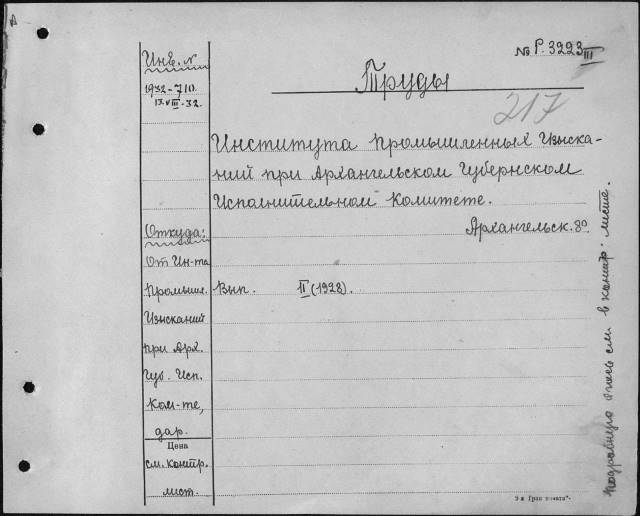 А
Инв. №
№ Р. 3223 III
1932-710.
17.VIII-32.
Труды
217
Института Промышленных Изыска-
ний при Архангельском Губернском
Исполнительном Комитете.
Откуда:
Архангельск. 8º.
От Ин-та
Промышл.
Вып. II (1928).
Изысканий
при Арх.
Губ. Исп.
Ком-те,
дар.
Цена
см. контр.
лист.
Подробную опись см. в контр. листе.